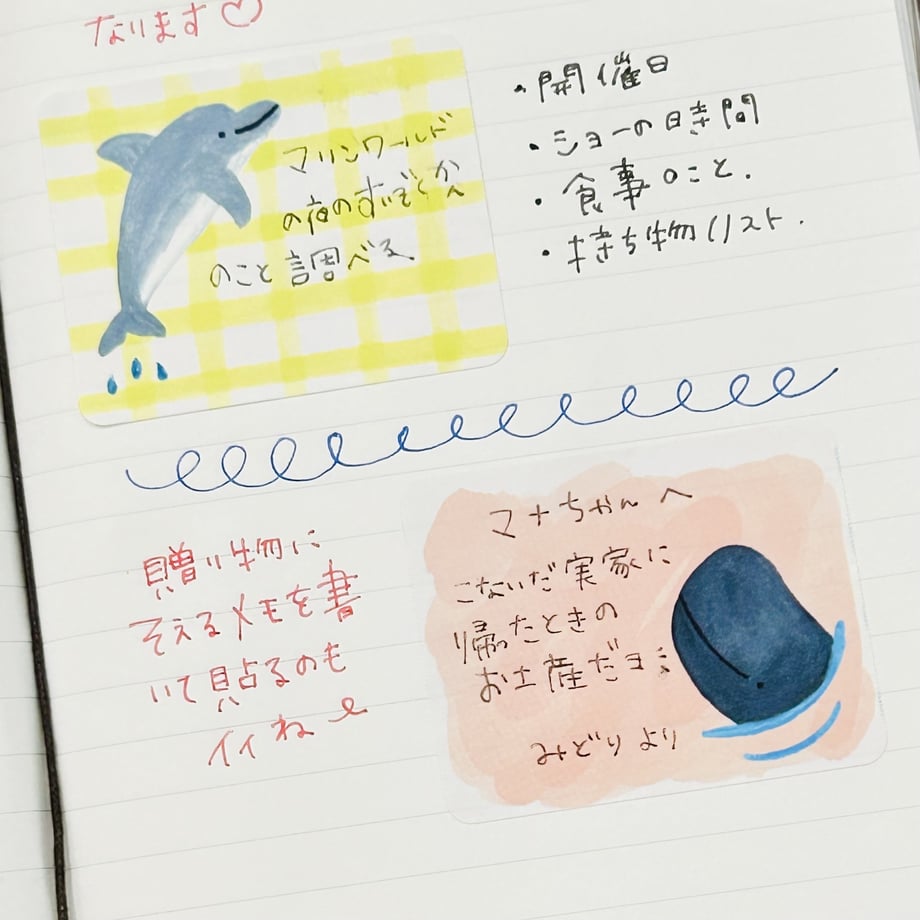 なります♡
マリンワールド
の夜のすいぞくかん
のこと調べる
・開催日
・ショーの時間
・食事のこと.
・持ち物リスト.
贈り物に
そえるメモを書
いて貼るのも
イイね
マナちゃんへ
こないだ実家に
帰ったときの
お土産だヨ
みどりより